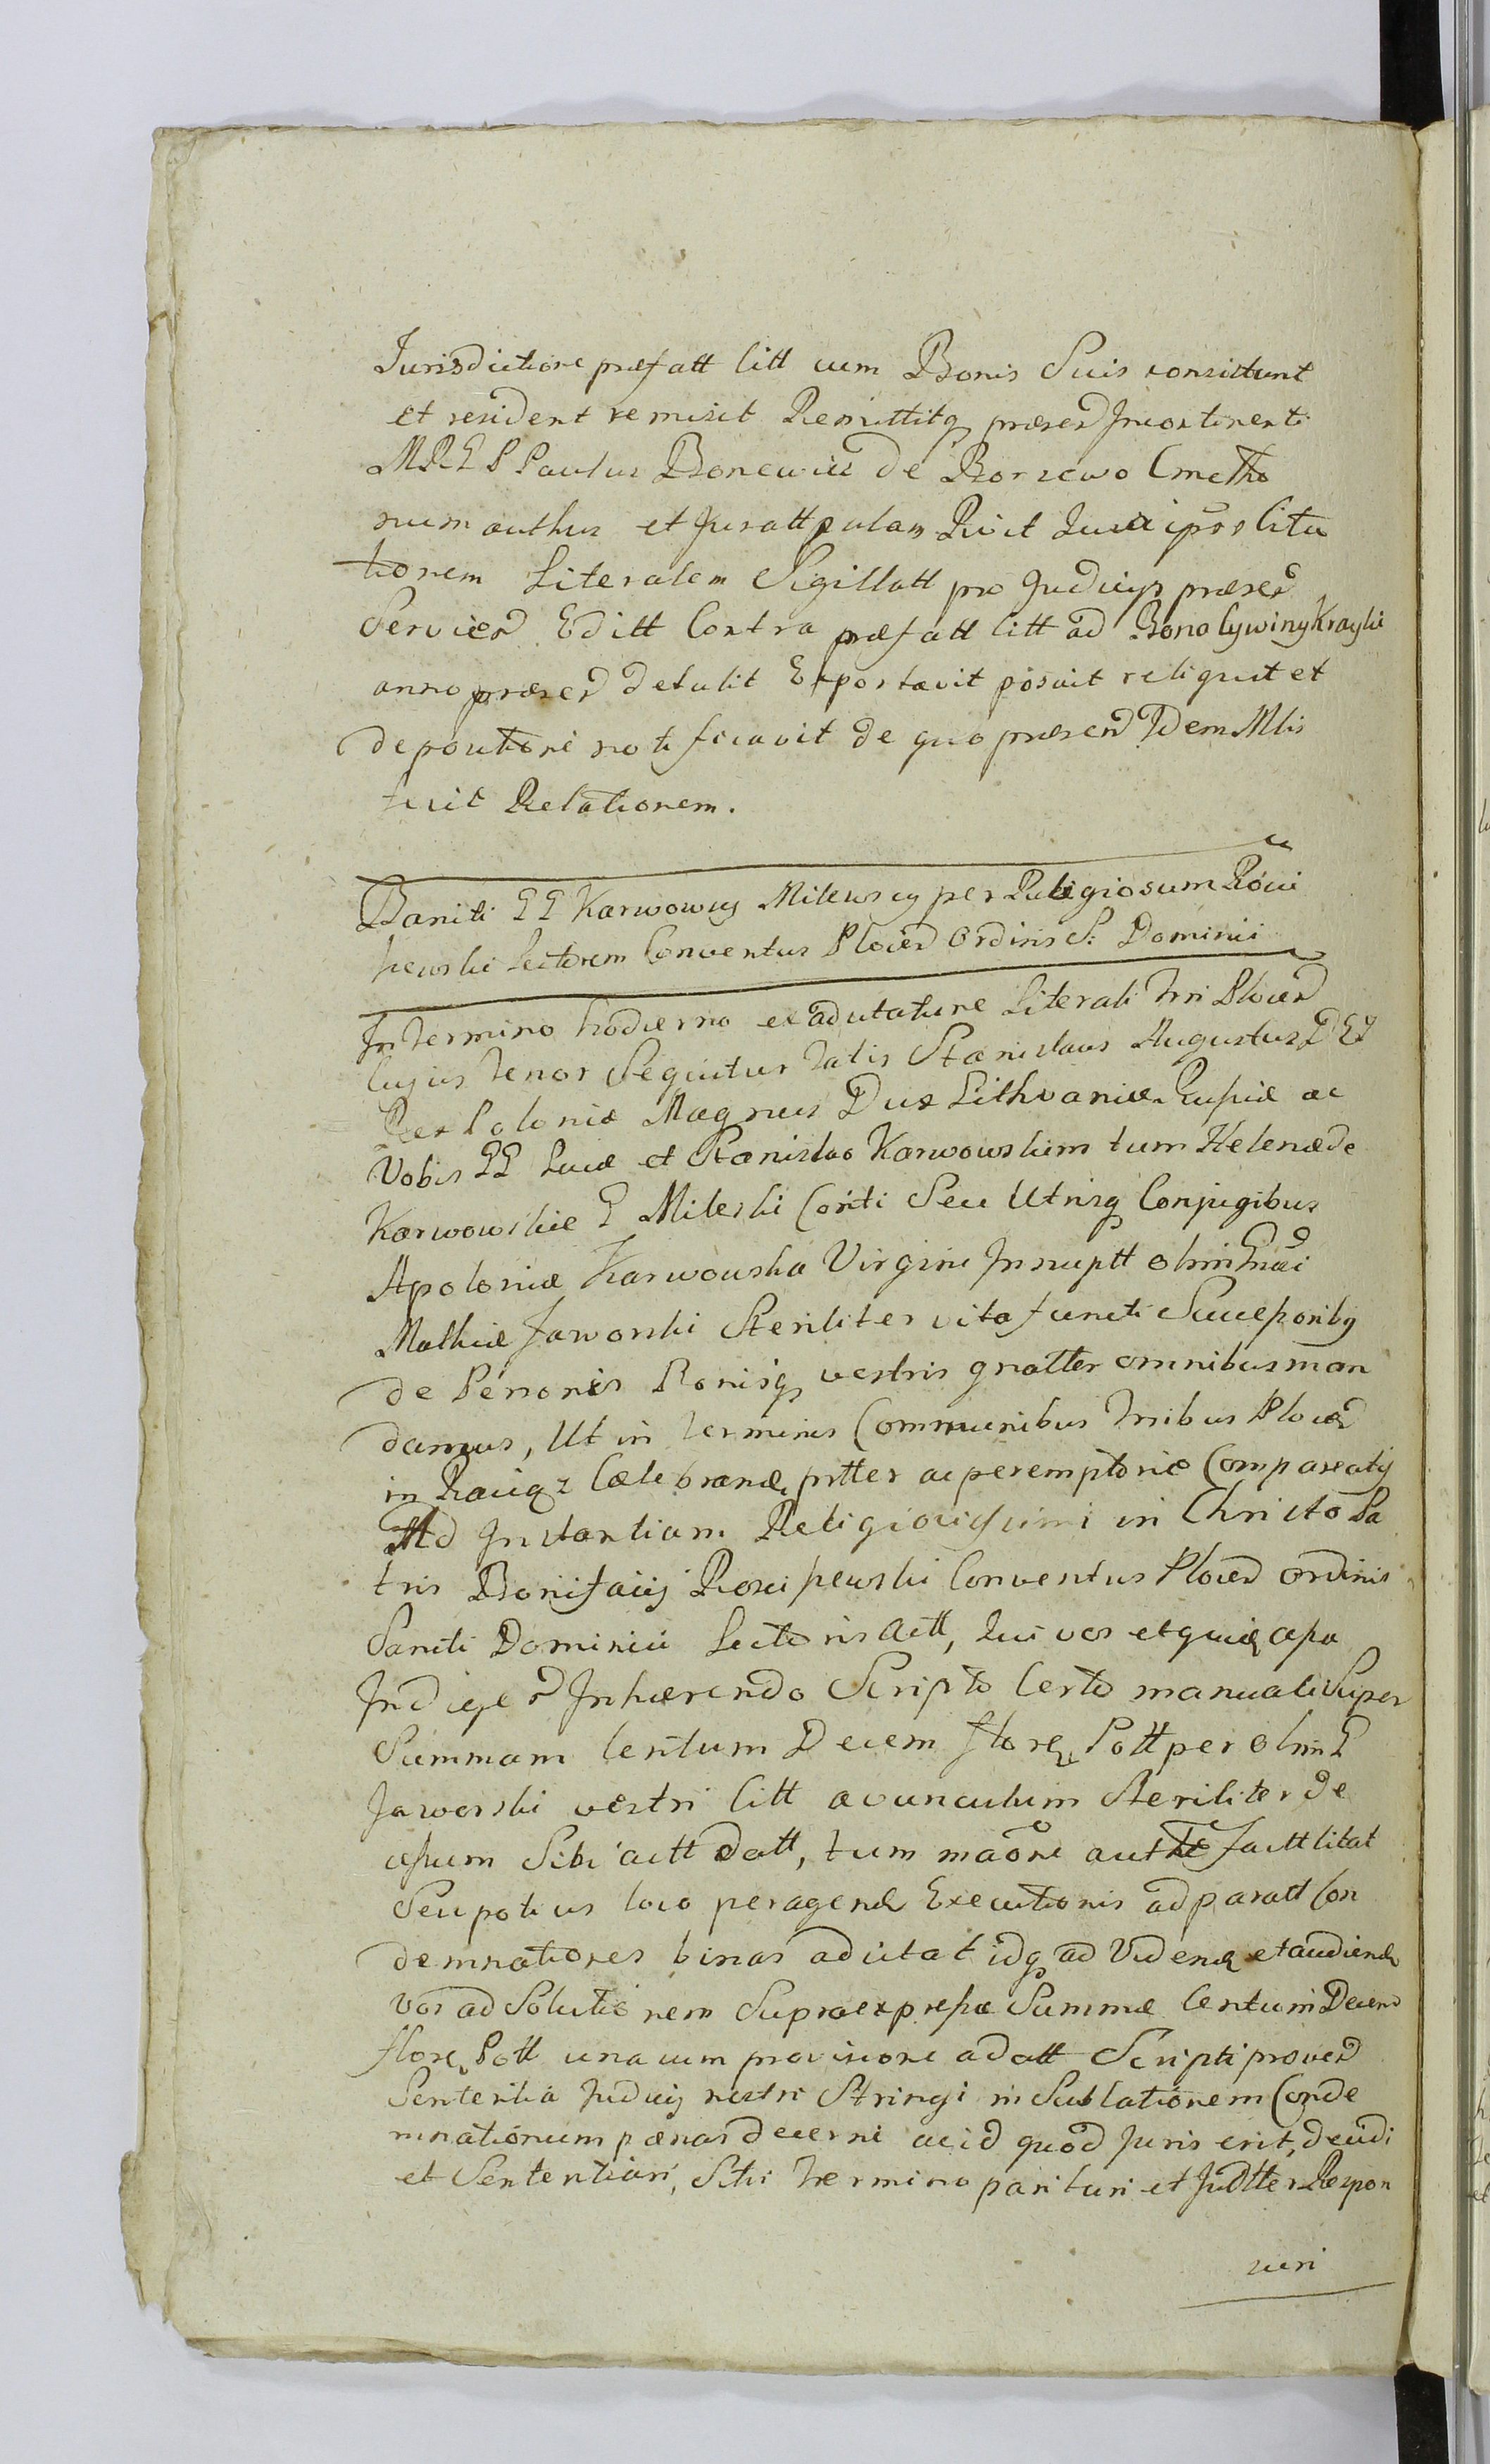 Jurisdictione præfatt Citt cum Bonis Suis consistunt
et resident remisit Remittitq præsen Incontinenti
MREPPaulus Bonewicz de Borzewo Cmetho
num authus et Juratt palam Quit Quia ipsos Cita
tionem Literalem Sigillatt pro Judicys præsen
Servien Editt Contra præfatt Citt ad Bona Cywiny Krayki
anno præsen detulit Exportavit posuit reliquit et
depoutione notificavit de quo præsen Idem Mlis
fecit Relationem.
Baniti GG Karwowscy Milewscy per Religiosum Rosci
szewski Lectorem Conventus Plocen Ordinis S: Dominici
In Termino hodierno ex adcitatione Literali Trri Plocen
Cujus Tenor Sequitur Talis Stanislaus Augustus DEI
Rex Poloniæ Magnus Dux Lithvaniæ Russiæ ac
Vobis GG Lucæ et Stanislao Karwowskim tum Helenæ de
Karwowskie G Mileski Conti Seu Utrisq Conjugibus
Apoloniæ Karwowska Virgini Innuptt olim Gnsi
Mathiæ Jaworski Steriliter vita functi Successoribq
de Personis Bonisq vestris gnatter omnibus man
damus, Ut in Terminis Communibus Trribus Plocen
in Raciąz Cælebrand, prtter ac peremptorie Compareatis
Ad Instantiam Religiosissimi in Christo Pa
tris Bonifacij Rosciszewski Conventus Plocen Ordinis
Sancti Dominici Lectoris Actt, Qui vos et quiq apa
Indige Inhærendo Scripto Certo manuali Super
Summam Centum Decem flore Pott per olim G
Jaworski vestri Citt avunculum Steriliter de
cessum Sibi actt datt, tum maone authte Factt Citat
Seu potius loco peragend Executionis ad paratt Con
demnationes binas adcitat idq ad Videnq et audiend
vos ad Solutionem Supraexpressæ Summæ Centum Decem
flore Pott una cum provisione a datt Scripti proven
Sententia Judicij nostri Stringi in Sublationem Conde
mnationum pænas decerni ac id quod Juris erit, decidi
et Sententiari, Sitis Termino parituri et Judtter Respon
suri